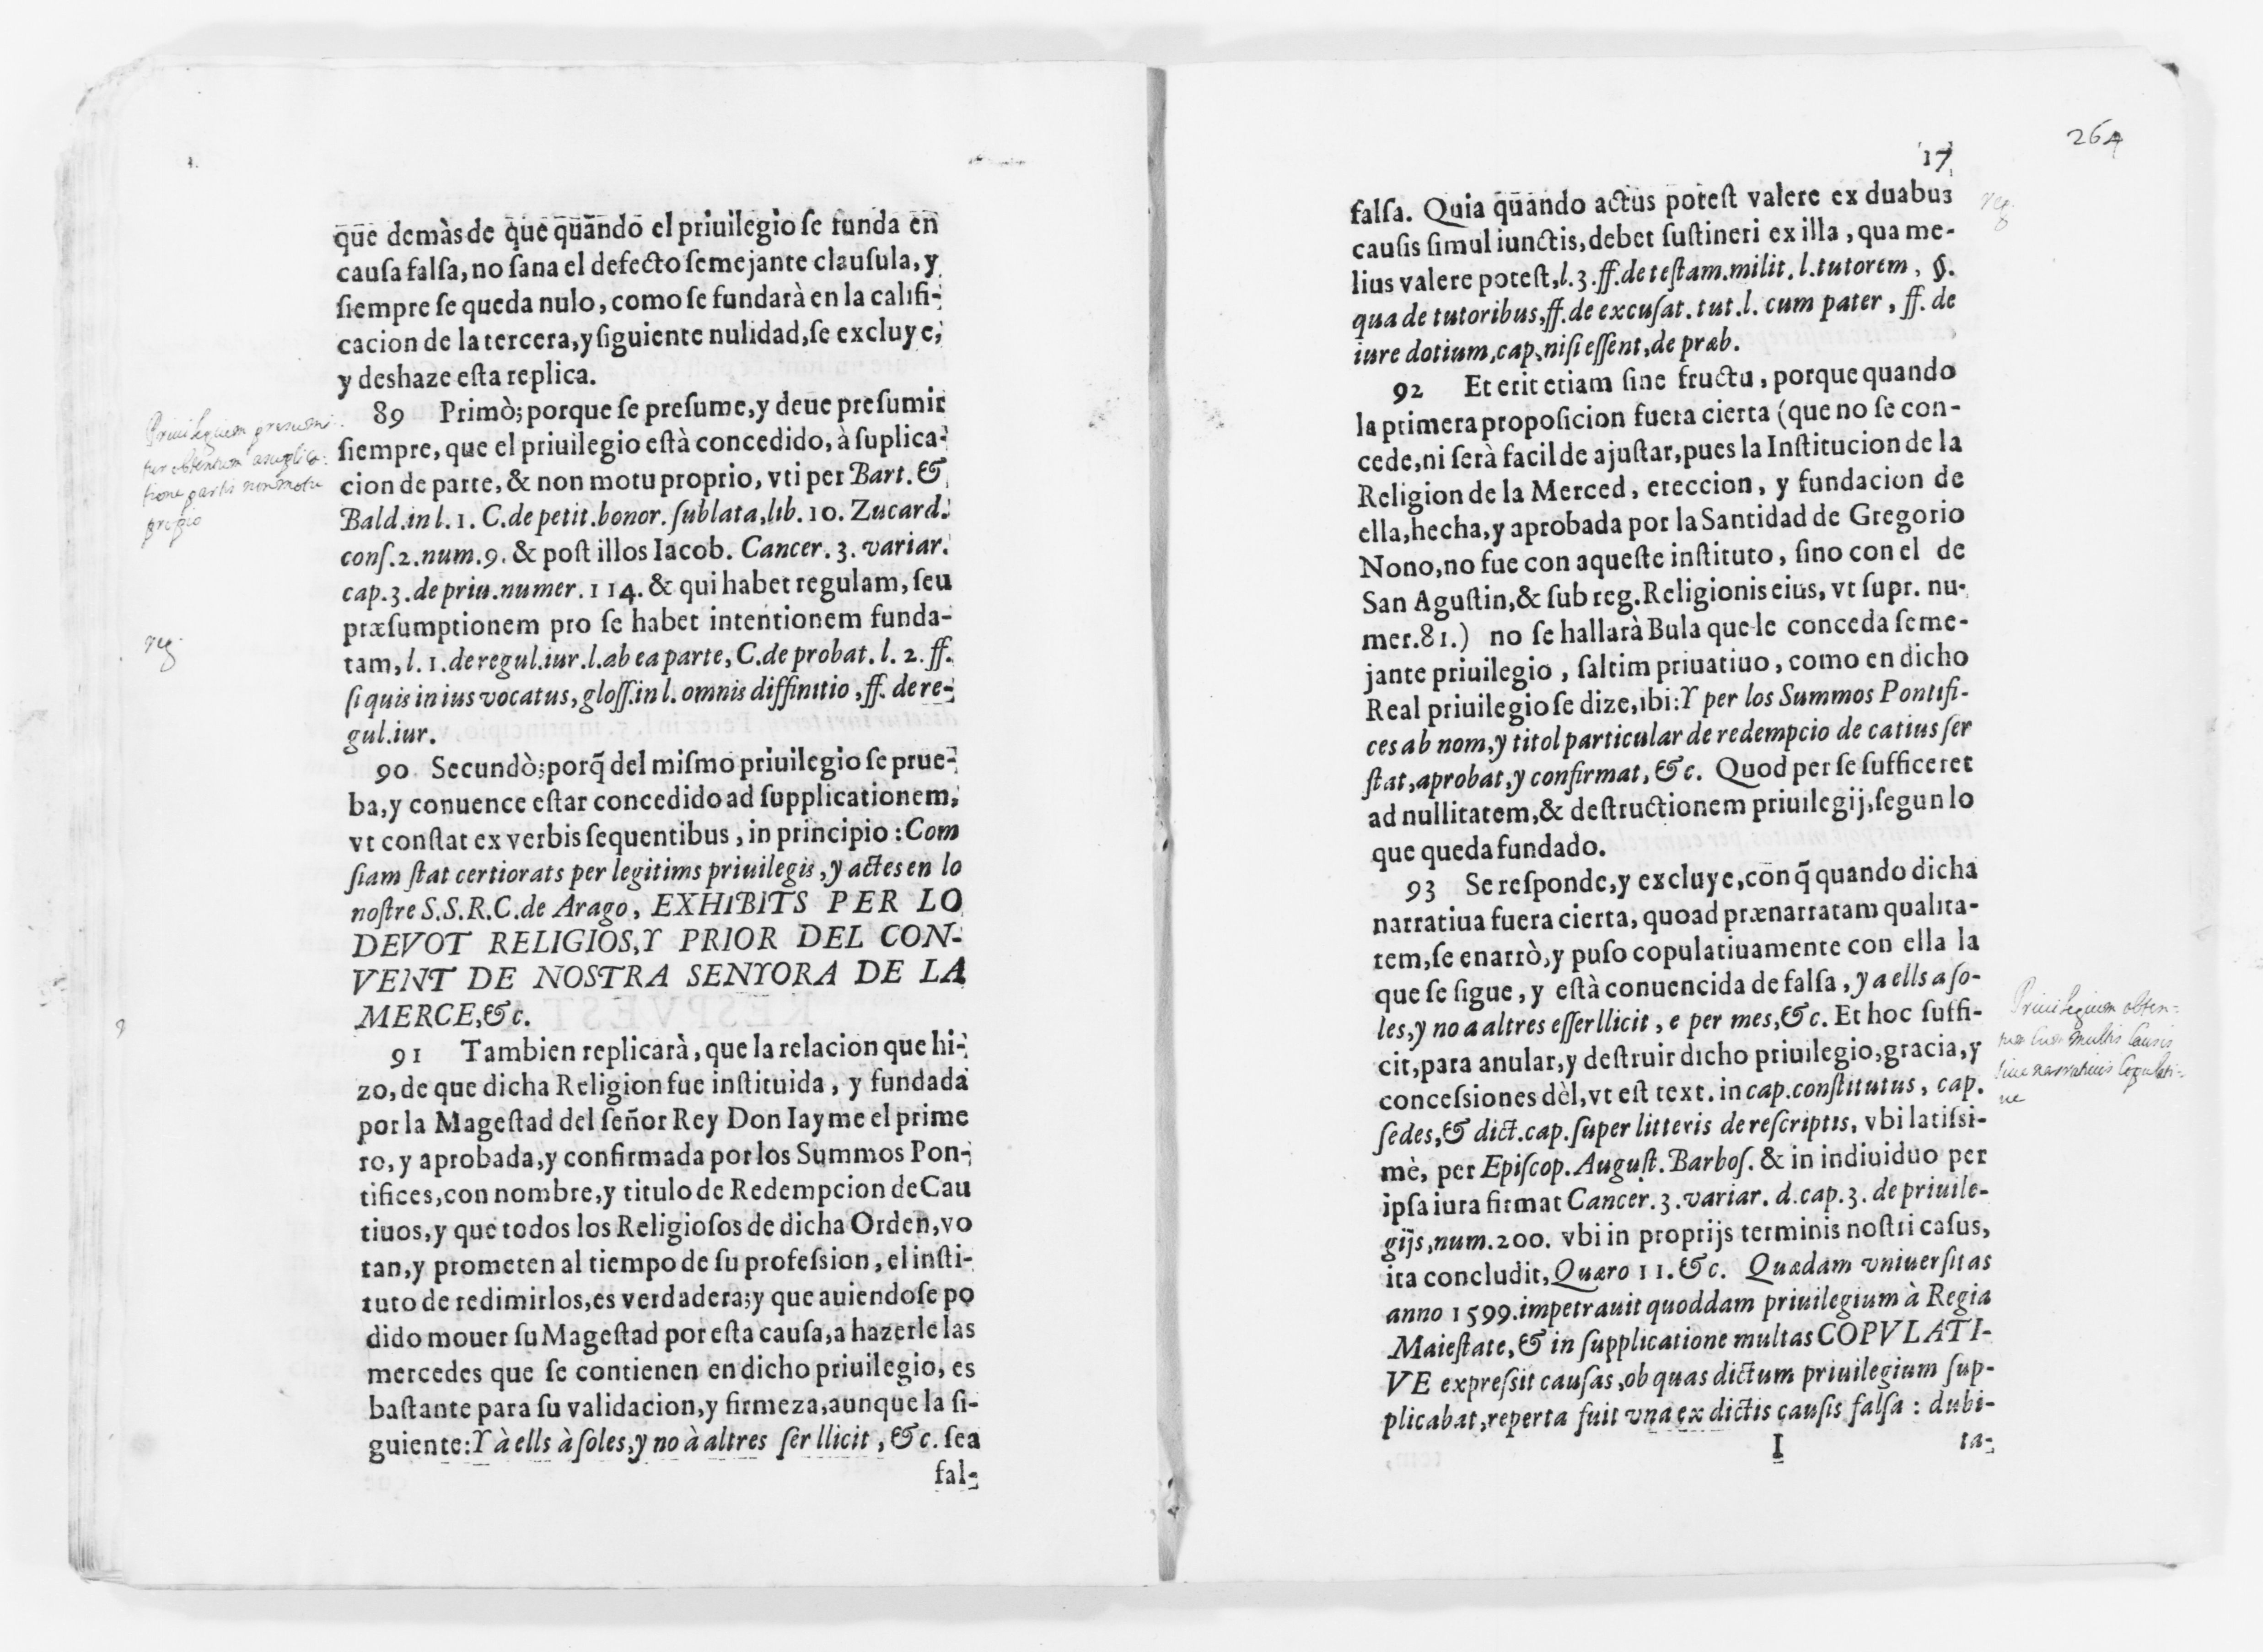 que demàs de que quando el priuilegio se funda en
causa falsa, no sana el defecto semejante clausula, y
siempre se queda nulo, como se fundarà en la califi-
cacion de la tercera, y siguiente nulidad, se excluye,
y deshaze esta replica.
89 Primò; porque se presume, y deue presumir
siempre, que el priuilegio està concedido, à suplica-
cion de parte, & non motu proprio, vti per Bart. &
Bald. in l. 1. C. de petit. bonor. sublata, lib. 10. Zucard.
cons. 2. num. 9. & post illos Iacob. Cancer. 3. variar.
cap. 3. de priu. numer. 114. & qui habet regulam, seu
præsumptionem pro se habet intentionem funda-
tam, l. 1. de regul. iur. l. ab ea parte, C. de probat. l. 2. ff.
si quis in ius vocatus, gloss. in l. omnis diffinitio, ff. de re-
gul. iur.
90 Secundò; porq̃ del mismo priuilegio se prue-
ba, y conuence estar concedido ad supplicationem,
vt constat ex verbis sequentibus, in principio: Com
siam stat certiorats per legitims priuilegis, y actes en lo
nostre S.S.R.C. de Arago, EXHIBITS PER LO
DEVOT RELIGIOS, Y PRIOR DEL CON-
VENT DE NOSTRA SENYORA DE LA
MERCE, &c.
91 Tambien replicarà, que la relacion que hi-
zo, de que dicha Religion fue instituida, y fundada
por la Magestad del señor Rey Don Iayme el prime
ro, y aprobada, y confirmada por los Summos Pon-
tifices, con nombre, y titulo de Redempcion de Cau
tiuos, y que todos los Religiosos de dicha Orden, vo
tan, y prometen al tiempo de su profession, el insti-
tuto de redimirlos, es verdadera; y que auiendose po
dido mouer su Magestad por esta causa, a hazerle las
mercedes que se contienen en dicho priuilegio, es
bastante para su validacion, y firmeza, aunque la si-
guiente: Y à ells à soles, y no à altres ser llicit, &c. sea
fal-
Priuilegium presumi-
tur obtentum asuplica-
tione partis non motu
proprio
reg.
264
17
falsa. Quia quando actus potest valere ex duabus
causis simul iunctis, debet sustineri ex illa, qua me-
lius valere potest, l. 3. ff. de testam. milit. l. tutorem, §.
qua de tutoribus, ff. de excusat. tut. l. cum pater, ff. de
iure dotium, cap. nisi essent, de præb.
92 Et erit etiam sine fructu, porque quando
la primera proposicion fuera cierta (que no se con-
cede, ni serà facil de ajustar, pues la Institucion de la
Religion de la Merced, ereccion, y fundacion de
ella, hecha, y aprobada por la Santidad de Gregorio
Nono, no fue con aqueste instituto, sino con el de
San Agustin, & sub reg. Religionis eius, vt supr. nu-
mer. 81.) no se hallarà Bula que le conceda seme-
jante priuilegio, saltim priuatiuo, como en dicho
Real priuilegio se dize, ibi: Y per los Summos Pontifi-
ces ab nom, y titol particular de redempcio de catius ser
stat, aprobat, y confirmat, &c. Quod per se sufficeret
ad nullitatem, & destructionem priuilegij, segun lo
que queda fundado.
93 Se responde, y excluye, con q̃ quando dicha
narratiua fuera cierta, quoad prænarratam qualita-
tem, se enarrò, y puso copulatiuamente con ella la
que se sigue, y està conuencida de falsa, y a ells a so-
les, y no a altres esser llicit, e per mes, &c. Et hoc suffi-
cit, para anular, y destruir dicho priuilegio, gracia, y
concessiones dèl, vt est text. in cap. constitutus, cap.
sedes, & dict. cap. super litteris de rescriptis, vbi latissi-
mè, per Episcop. August. Barbos. & in indiuiduo per
ipsa iura firmat Cancer. 3. variar. d. cap. 3. de priuile-
gijs, num. 200. vbi in proprijs terminis nostri casus,
ita concludit, Quæro 11. &c. Quædam vniuersitas
anno 1599. impetrauit quoddam priuilegium à Regia
Maiestate, & in supplicatione multas COPVLATI-
VE expressit causas, ob quas dictum priuilegium sup-
plicabat, reperta fuit vna ex dictis causis falsa: dubi-
I
ta-
reg.
Priuilegium obten-
multis causis
siue narratiuis copulati-
ue